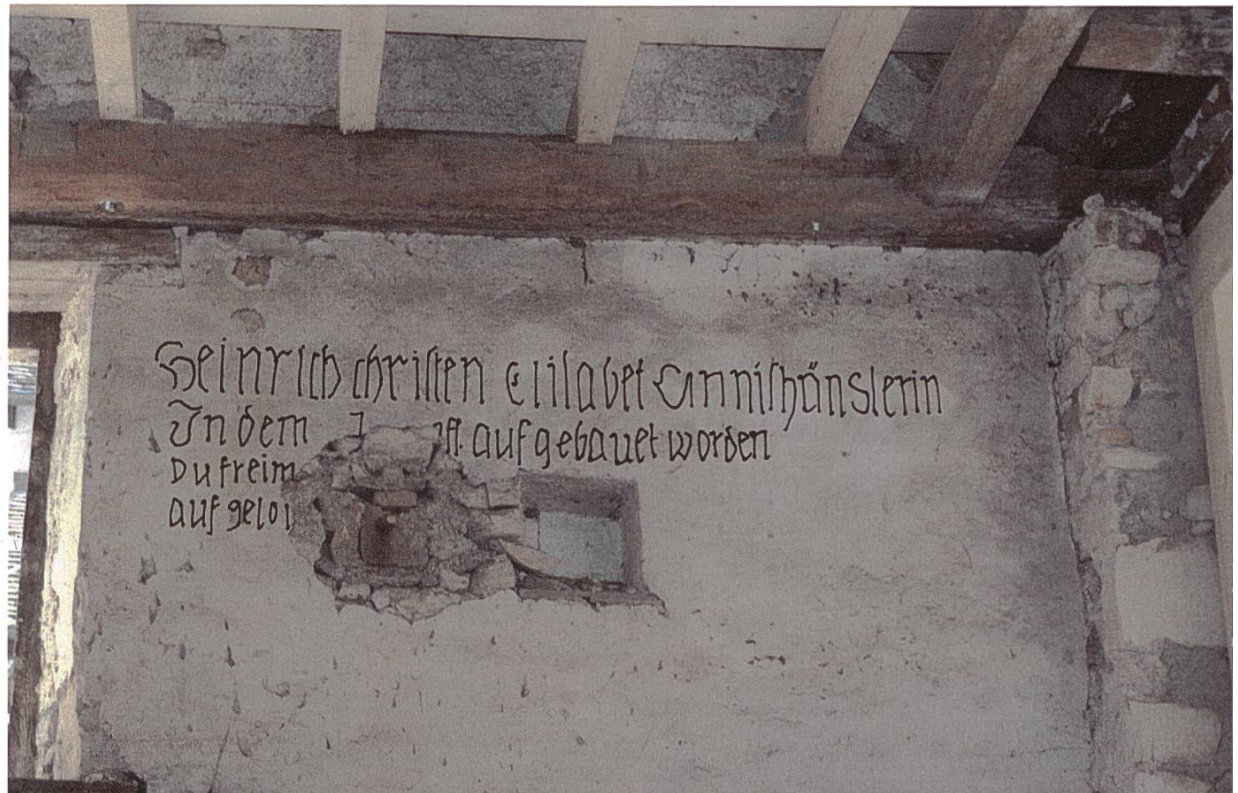 Heinrich christen Elisabet Annishänslerin
In dem J aufgebauet worden
Du freim
auf geloi